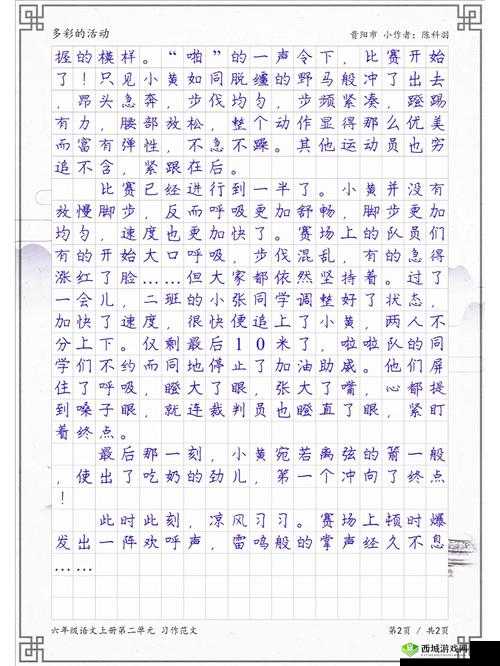 多彩的活动
晋阳市 小作者：陈科羽
握的模样。“啪”的一声令下，比赛开始
了！只见小黄如同脱缰的野马般冲了出去
，昂头急奔，步伐均匀，步频紧凑，蹬踢
有力，腰部放松，整个动作显得那么优美
而富有弹性，不急不躁。其他运动员也穷
追不舍，紧跟在后。
比赛已经进行到一半了。小黄并没有
放慢脚步，反而呼吸更加舒畅，脚步更加
均匀，速度也更加快了。赛场上的队员们
有的开始大口呼吸，步伐混乱，有的急得
涨红了脸……但大家都依然坚持着。过了
一会儿，二班的小张同学调整好了状态，
加快了速度，很快便追上了小黄，两人不
分上下。仅剩最后10米了，啦啦队的同
学们不约而同地停止了加油助威。他们屏
住了呼吸，瞪大了眼，张大了嘴，心都提
到嗓子眼，就连裁判员也瞪直了眼，紧盯
着终点。
最后那一刻，小黄宛若离弦的箭一般
，使出了吃奶的劲儿，第一个冲向了终点
！
此时此刻，凉风习习。赛场上顿时爆
发出一阵欢呼声，雷鸣般的掌声经久不息
……
六年级语文上册第二单元 习作范文
第2页 / 共2页
西城游戏网